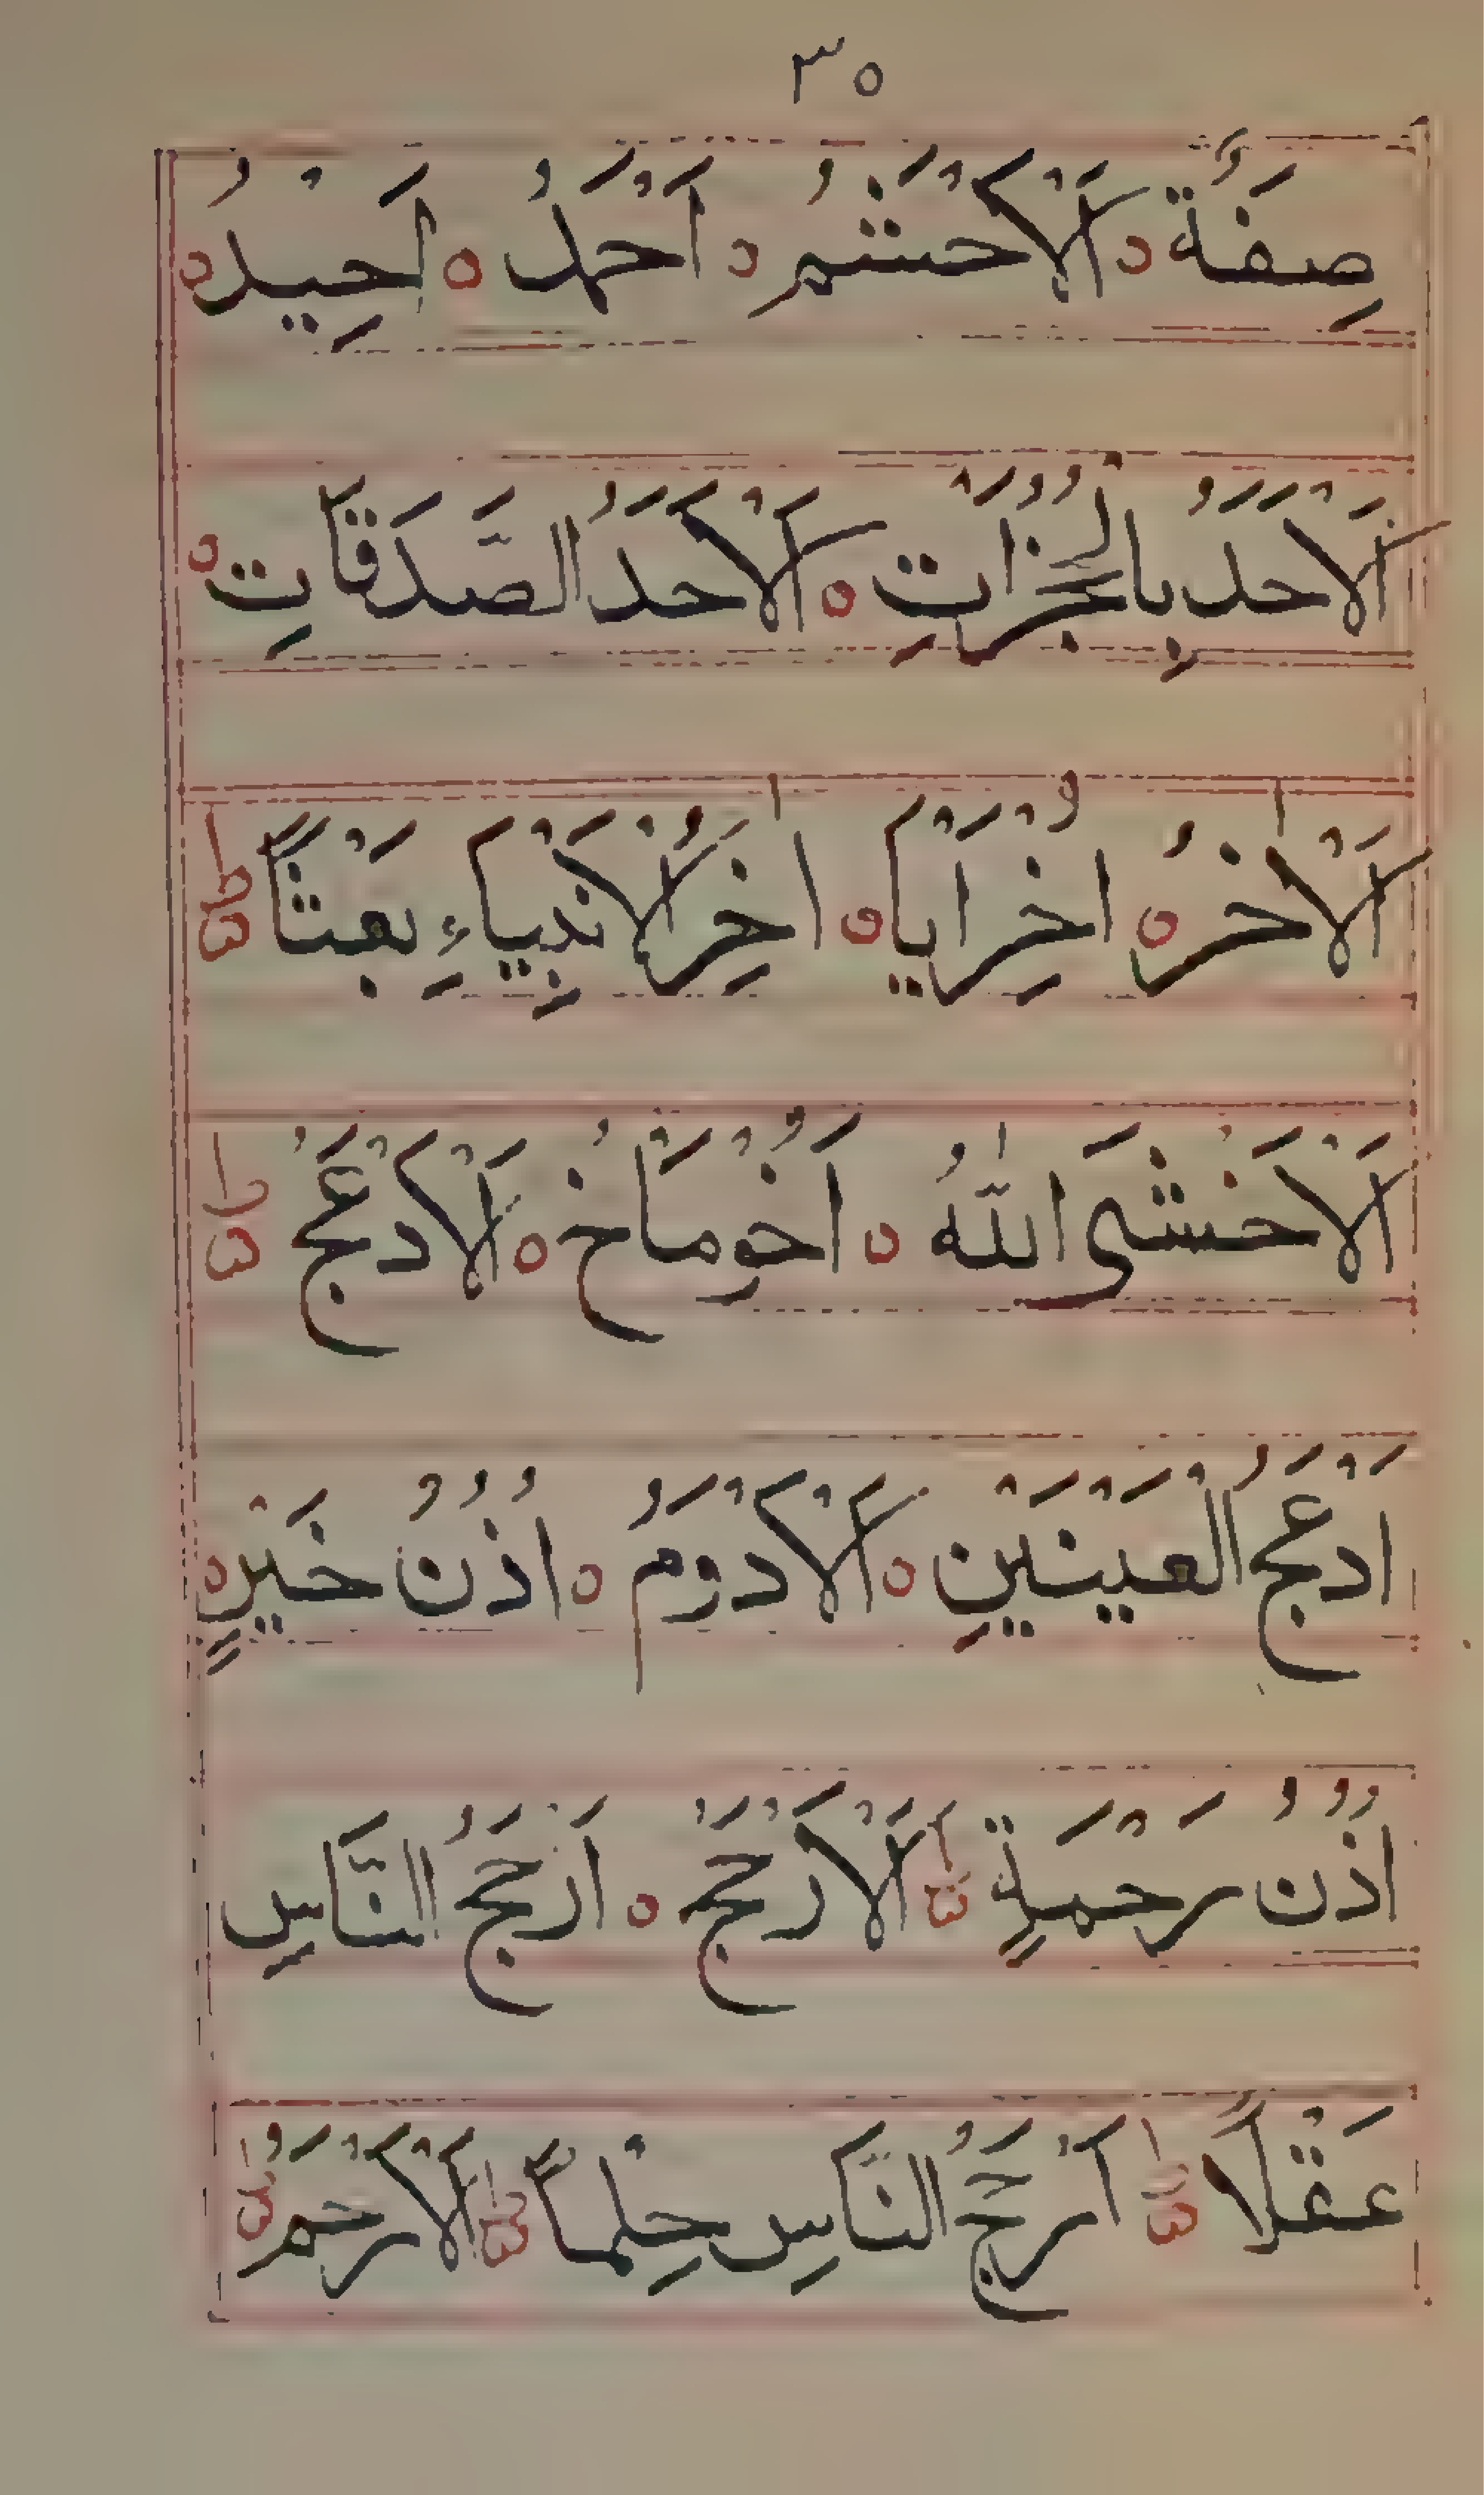 ٣٥
صِفَةً ه اَلْاَحْشَمُ ه اَحْمَدُ ه اُحِيْدُ ه
اَلْاَحَدُ بِالْحُجُزَاتِ ه اَلْاَحَدُ الصَّدَقَاتِ ه
اَلْاٰخِرُ ه اُخْرَايَا ه اٰخِرُ الْاَنْبِيَاءِ بَعْثًا ط
اَلْاَخْشَى اللّٰهُ ه اَخُوْمَاخْ ه اَلْاَدْعَجُ ط
اَدْعَجُ الْعَيْنَيْنِ ه اَلْاَدْوَمُ ه اُذُنُ خَيْرٍ ه
اُذُنُ رَحْمَةٍ ط اَلْاَرْجَحُ ه اَرْجَحُ النَّاسِ
عَقْلًا ط اَرْجَحُ النَّاسِ حِلْمًا ط اَلْاَرْحَمُ ط